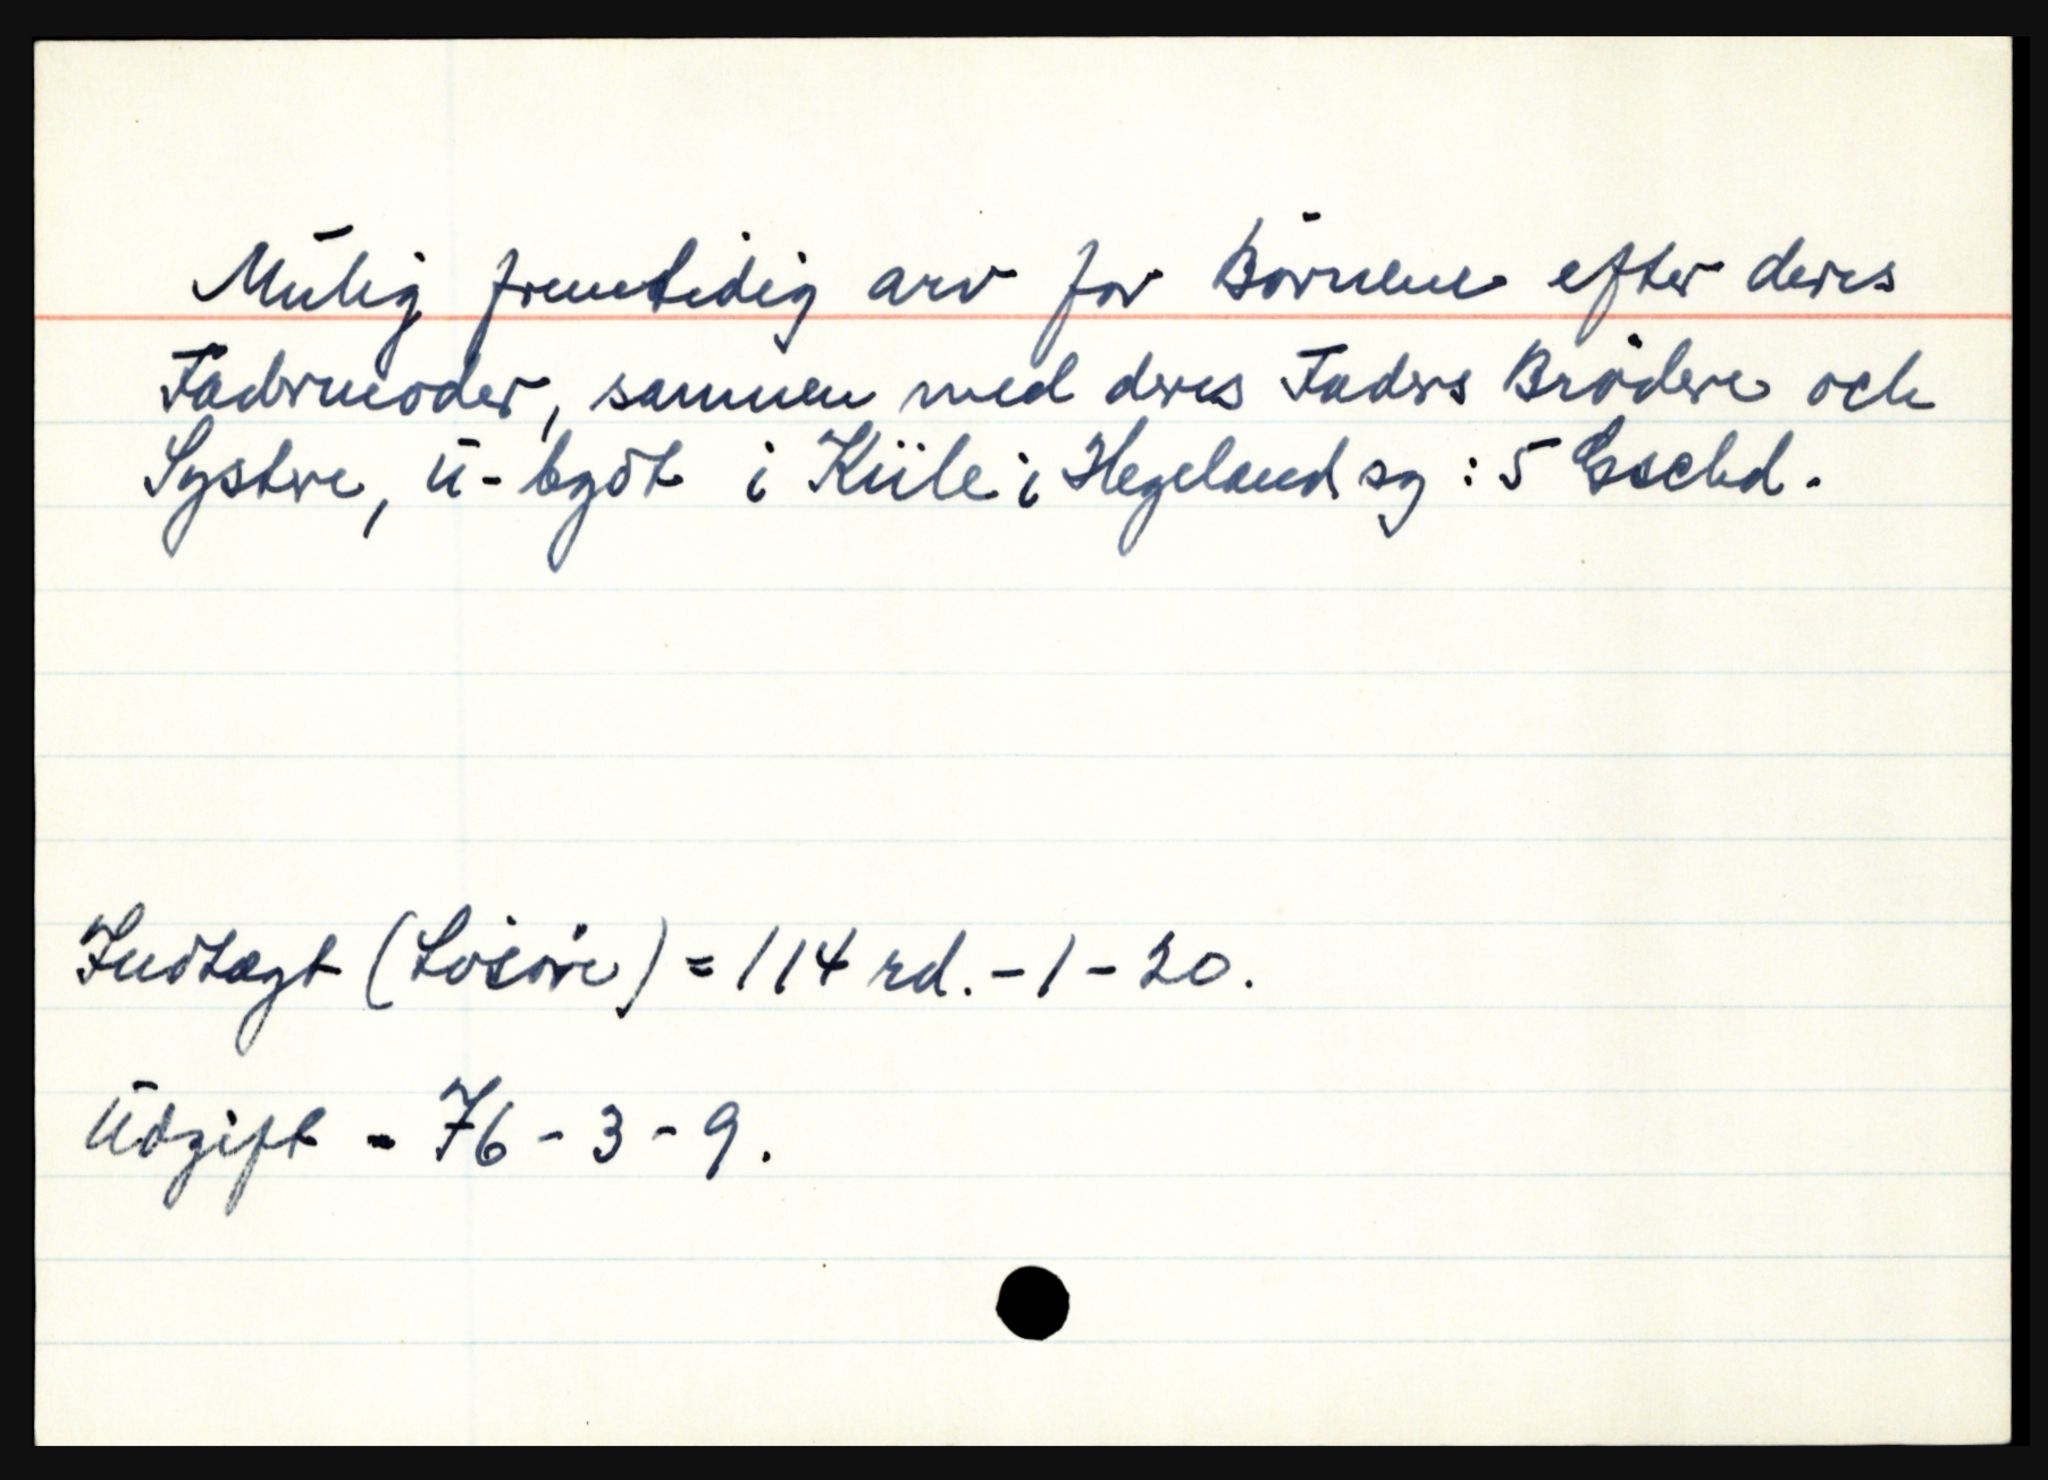 Mülig fremtidig arv for Börnene efter deres
Fadermoder, sammen med deres Faders Brödre och
Systre, ü-bygöt i Kiile i Hegeland sg : 5 Gschd.
Indtægt (Lösöre) = 114 rd. - 1 - 20.
Üdgift - 76 - 3 - 9.